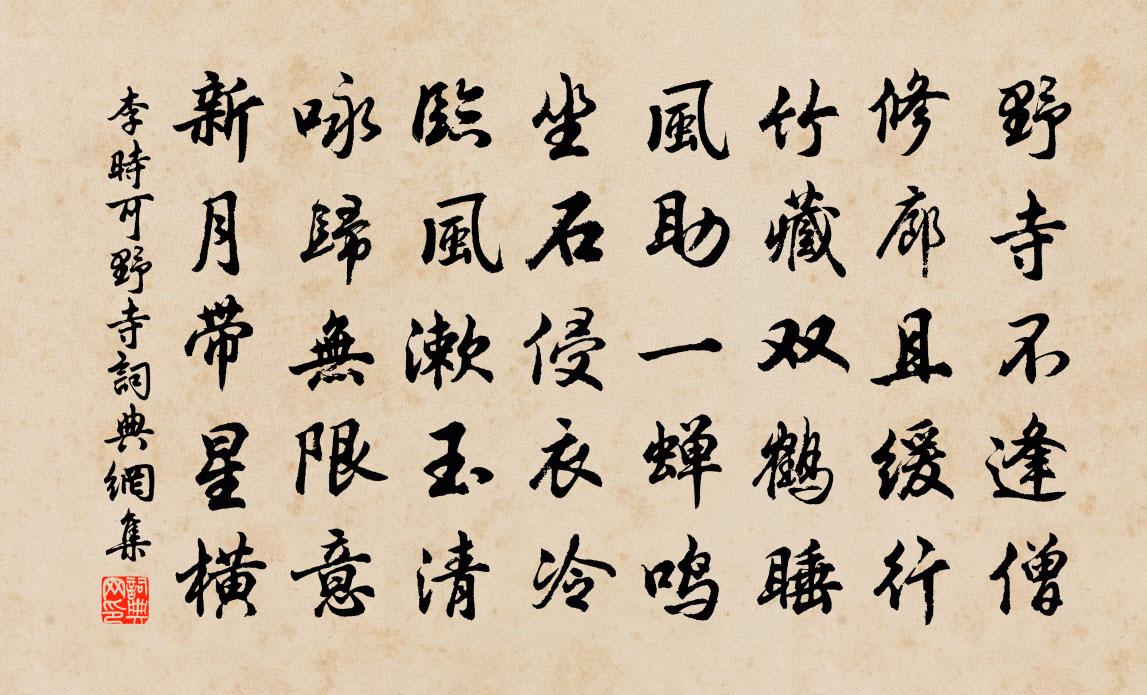 野寺不逢僧
修廊且缓行
竹藏双鹤睡
風助一蝉鸣
坐石侵衣冷
臨風漱玉清
咏歸無限意
新月带星橫
李時可野寺詞典網集
詞典
网印